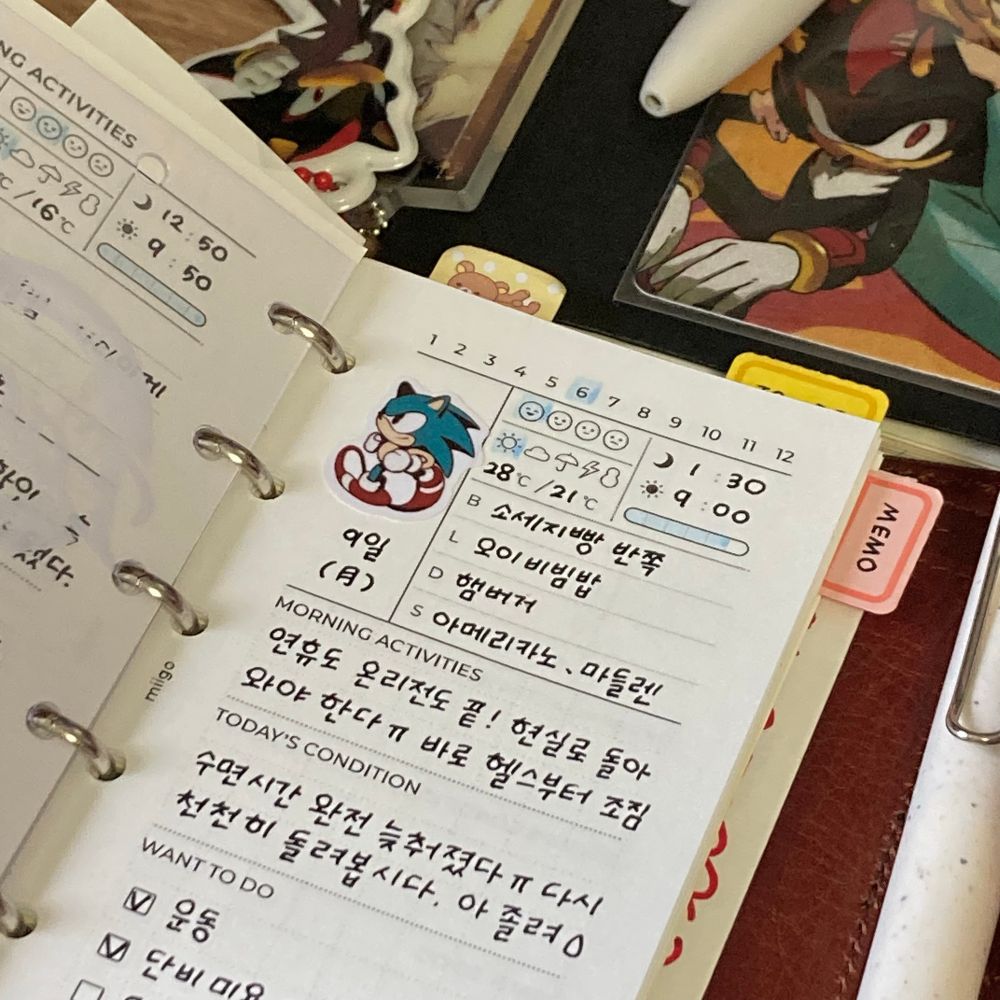 NG ACTIVITIES
/16℃
12:50
9:50
1 2 3 4 5 6 7 8 9 10 11 12
28℃/21℃
1:30
9:00
9일
(月)
B 소세지빵 반쪽
L 오이비빔밥
D 햄버거
S 아메리카노、마들렌
MORNING ACTIVITIES
연휴도 온리전도 끝! 현실로 돌아
와야 한다ㅠ 바로 헬스부터 조짐
TODAY'S CONDITION
수면시간 완전 늦춰졌다ㅠ 다시
천천히 돌려봅시다. 아 졸려
WANT TO DO
운동
단비 미용
miigo
MEMO